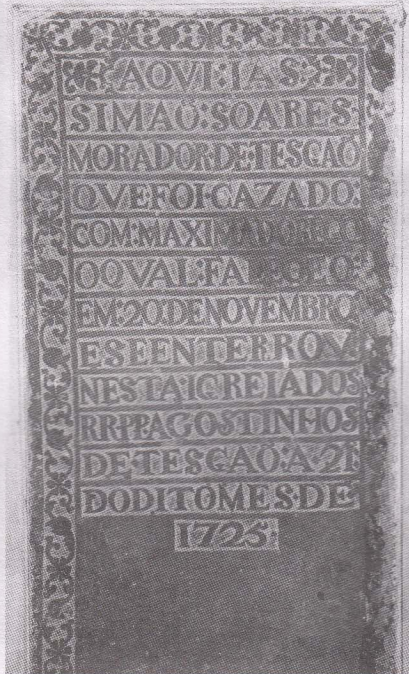 AQVI:IAS
SIMAÕ:SOARES
MORADOR·DE·TESCAÕ
QVE·FOI·CAZADO:
COM:MAXIMA
OQVAL:FALECEO:
EM:20:DE·NOVEMBRO
E·SE·ENTERROV
NESTA·IGREIA·DOS
RRPP·AGOSTINHOS
DE·TESCAÕ:A·21·
DO·DITO·MES·DE
1725: